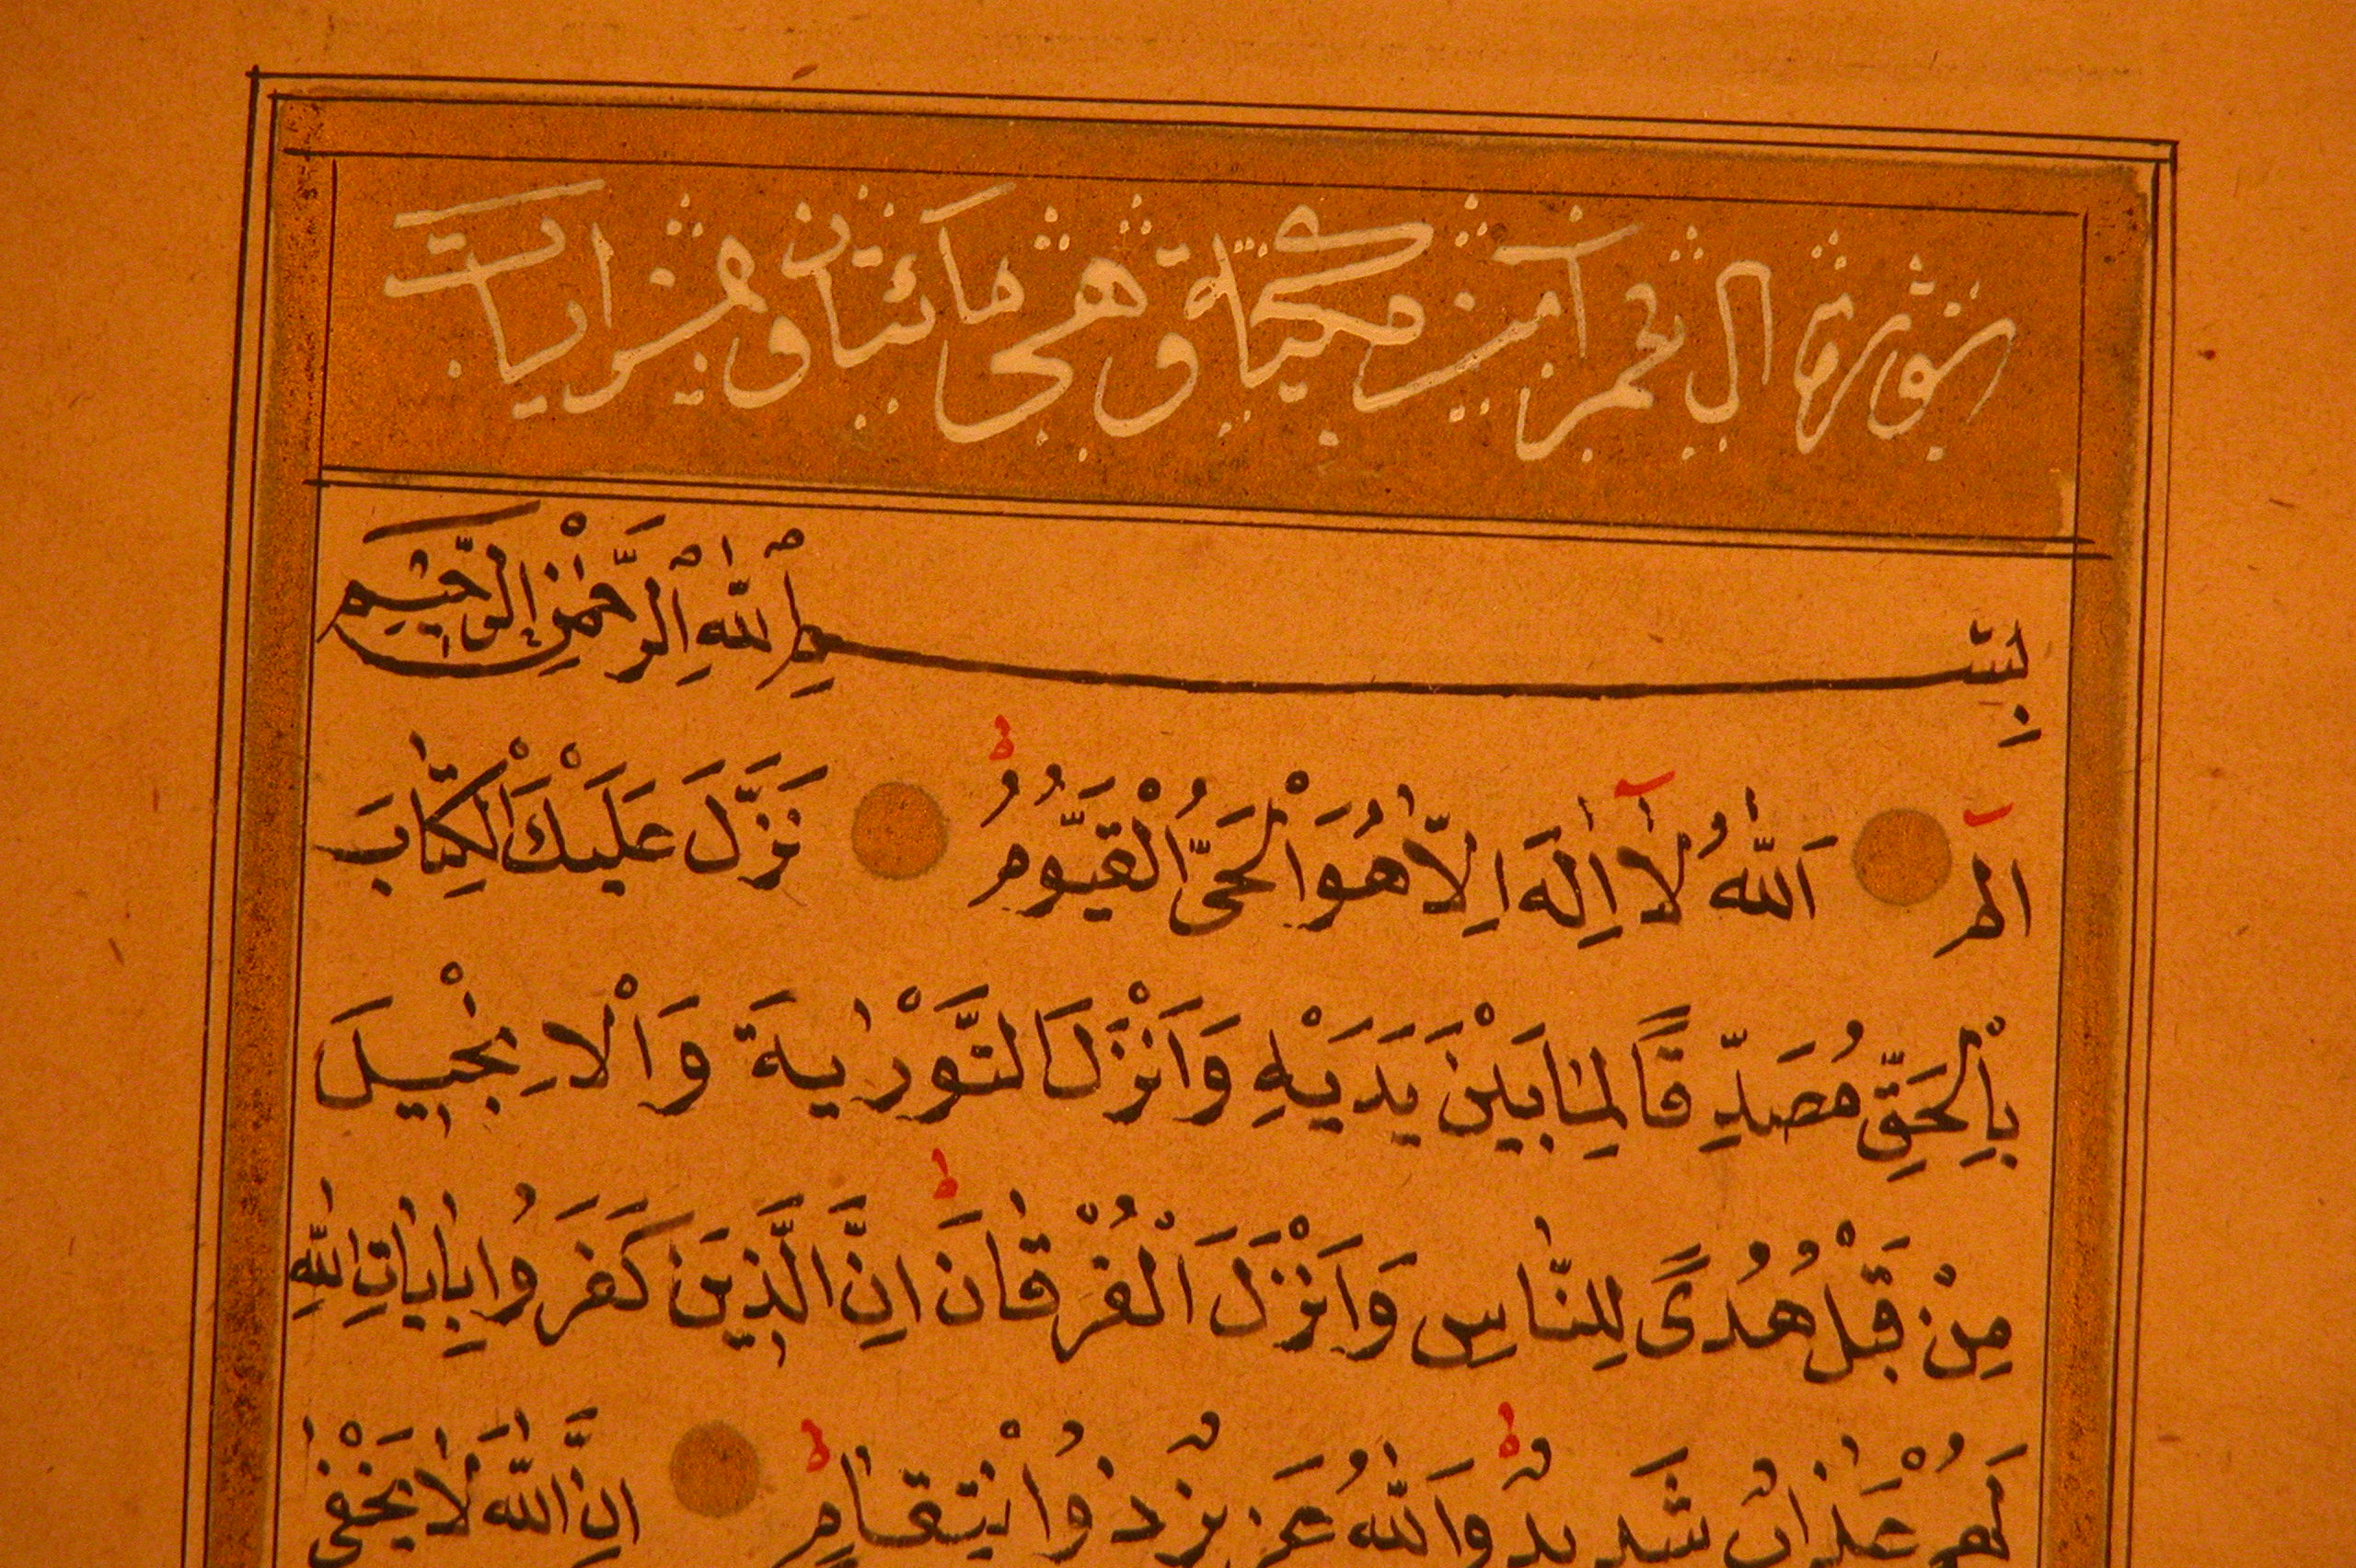 سورة آل عمران مكية وهي مائتان وعشر آيات
بِسْمِ اللّٰهِ الرَّحْمٰنِ الرَّحِيمِ
الٓمٓ اَللّٰهُ لَٓا اِلٰهَ اِلَّا هُوَ الْحَىُّ الْقَيُّومُ نَزَّلَ عَلَيْكَ الْكِتَابَ
بِالْحَقِّ مُصَدِّقًا لِمَا بَيْنَ يَدَيْهِ وَاَنْزَلَ التَّوْرٰيةَ وَالْاِنْجٖيلَ
مِنْ قَبْلُ هُدًى لِلنَّاسِ وَاَنْزَلَ الْفُرْقَانَ اِنَّ الَّذٖينَ كَفَرُوا بِاٰيَاتِ اللّٰهِ
لَهُمْ عَذَابٌ شَدٖيدٌ وَاللّٰهُ عَزٖيزٌ ذُو انْتِقَامٍ اِنَّ اللّٰهَ لَا يَخْفٰى